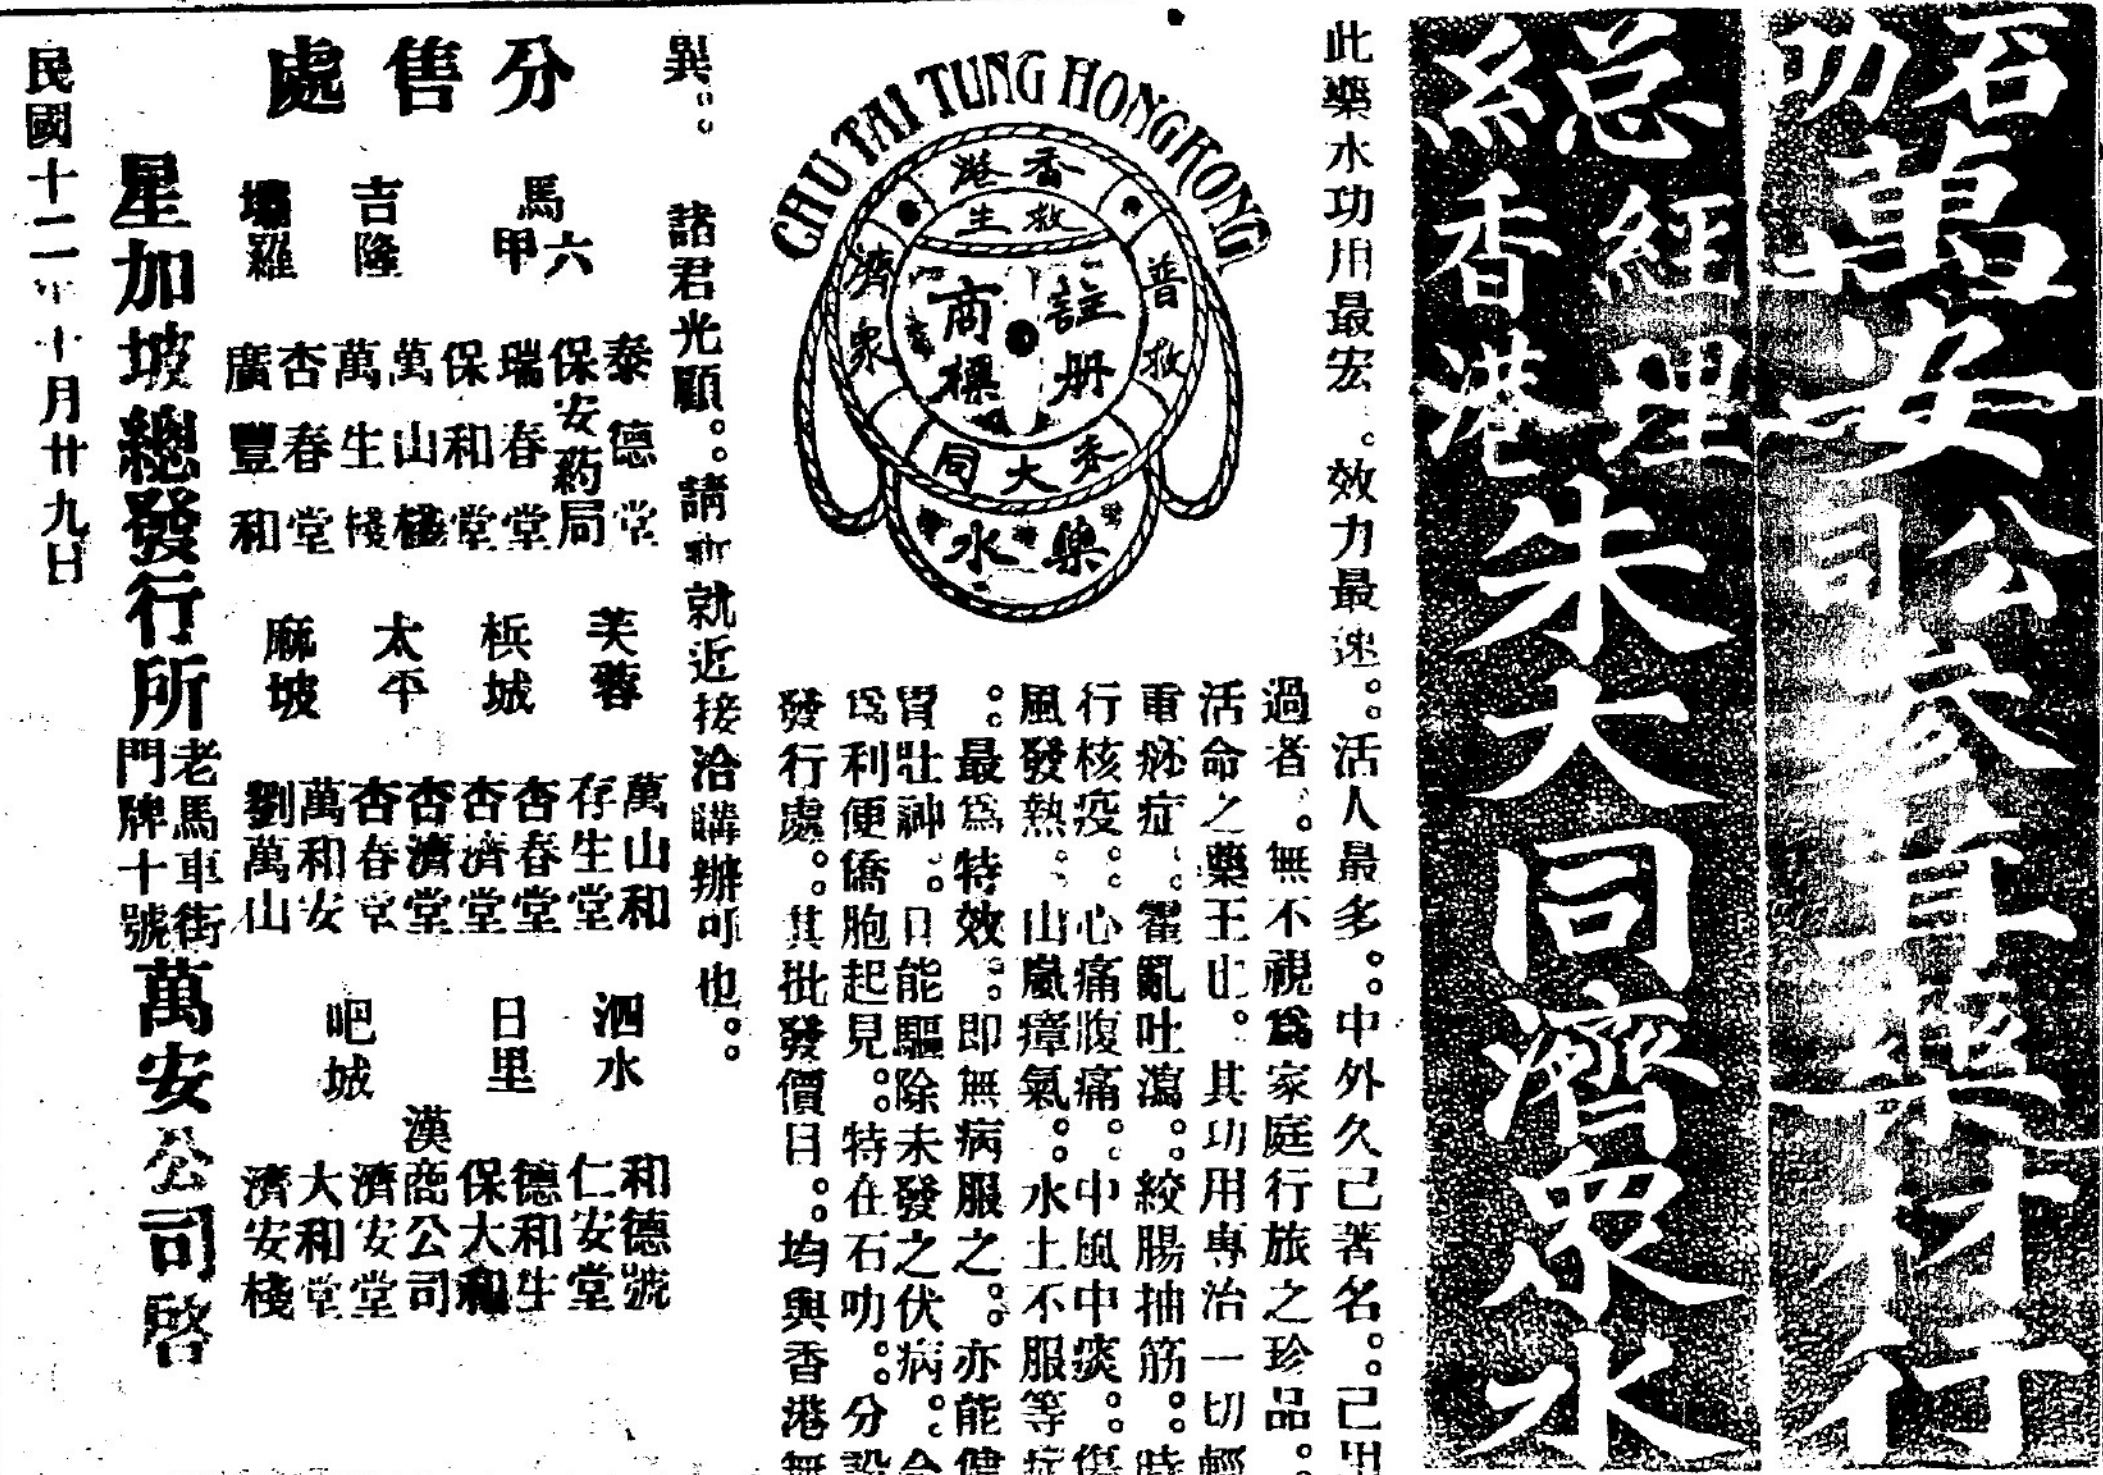 石叻萬安公司參茸藥材行
总經理香港朱大同濟眾水
此藥水功用最宏。效力最速。。活人最多。。中外久已著名。。已用
過者。無不視爲家庭行旅之珍品。。
活命之藥王也。其功用專治一切輕
重痧症。。霍亂吐瀉。。絞腸抽筋。。時
行核疫。。心痛腹痛。。中風中痰。。傷
風發熱。。山嵐瘴氣。。水土不服等症
。。最爲特效。。即無病服之。。亦能健
胃壯神。。日能驅除未發之伏病。。今
爲利便僑胞起見。。特在石叻。。分設
發行處。。其批發價目。。均與香港無
異。。諸君光顧。。請就近接洽購辦可也。。
CHU TAI TUNG HONGKONG
香港
救生
普救
濟眾
註册
商標
朱大同
藥水
分售處
馬六甲
泰德堂
保安葯局
瑞春堂
保和堂
吉隆
萬山棧
萬生棧
壩羅
杏春堂
廣豐和
芙蓉
萬山和
存生堂
梹城
杏春堂
杏濟堂
太平
杏濟堂
杏春堂
麻坡
萬和安
劉萬山
泗水
和德號
仁安堂
日里
德和生
保大和
吧城
漢商公司
濟安堂
大和堂
濟安棧
星加坡總發行所
老馬車街
門牌十號
萬安公司啓
民國十二年十月廿九日